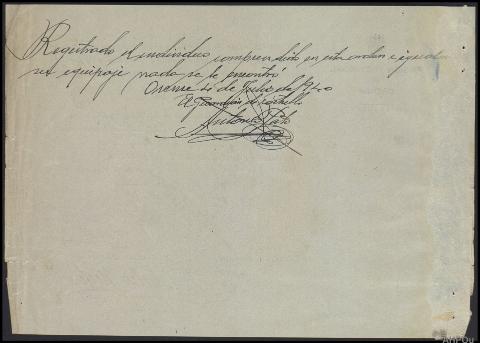 Registrado el individuo comprendido en esta orden e igualm
su equipaje nada se le encontró
Orense 4 de Julio de 1940
El Guardia de
Antonio
AHPOu